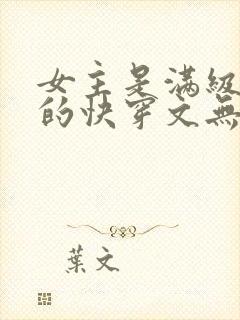 女主是满级
的快穿文無
葉文